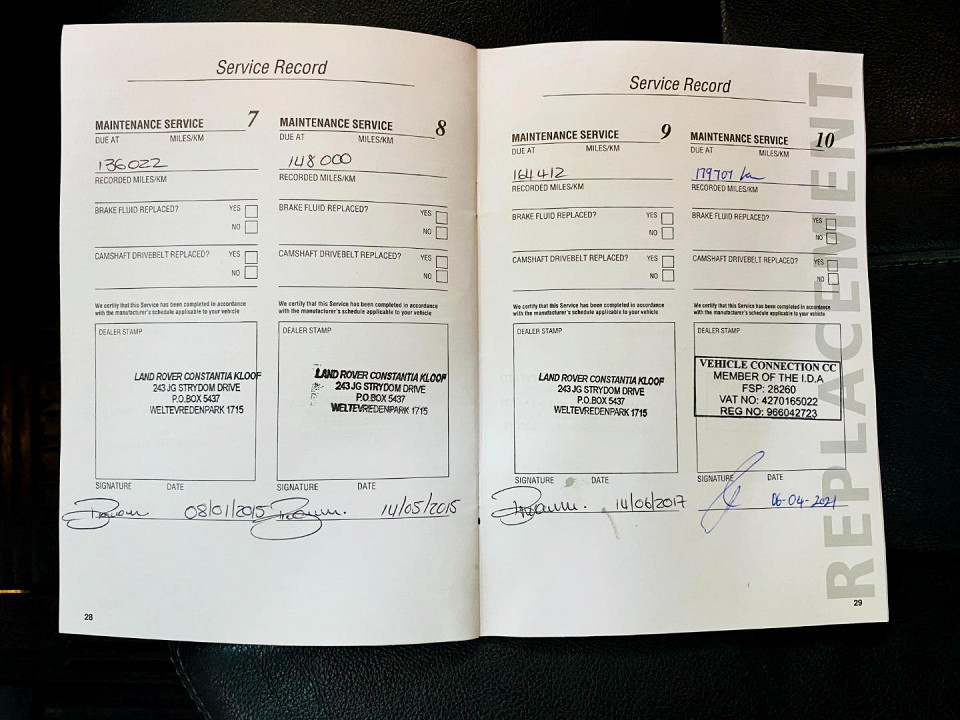 Service Record
MAINTENANCE SERVICE 7
DUE AT MILES/KM
136022
RECORDED MILES/KM
BRAKE FLUID REPLACED? YES
NO
CAMSHAFT DRIVEBELT REPLACED? YES
NO
We certify that this Service has been completed in accordance
with the manufacturer's schedule applicable to your vehicle
DEALER STAMP
LAND ROVER CONSTANTIA KLOOF
243 JG STRYDOM DRIVE
P.O.BOX 5437
WELTEVREDENPARK 1715
SIGNATURE DATE
08/01/2015
MAINTENANCE SERVICE 8
DUE AT MILES/KM
148000
RECORDED MILES/KM
BRAKE FLUID REPLACED? YES
NO
CAMSHAFT DRIVEBELT REPLACED? YES
NO
We certify that this Service has been completed in accordance
with the manufacturer's schedule applicable to your vehicle
DEALER STAMP
LAND ROVER CONSTANTIA KLOOF
243 JG STRYDOM DRIVE
P.O.BOX 5437
WELTEVREDENPARK 1715
SIGNATURE DATE
14/05/2015
28
Service Record
MAINTENANCE SERVICE 9
DUE AT MILES/KM
164412
RECORDED MILES/KM
BRAKE FLUID REPLACED? YES
NO
CAMSHAFT DRIVEBELT REPLACED? YES
NO
We certify that this Service has been completed in accordance
with the manufacturer's schedule applicable to your vehicle
DEALER STAMP
LAND ROVER CONSTANTIA KLOOF
243 JG STRYDOM DRIVE
P.O.BOX 5437
WELTEVREDENPARK 1715
SIGNATURE DATE
14/06/2017
MAINTENANCE SERVICE 10
DUE AT MILES/KM
179707 km
RECORDED MILES/KM
BRAKE FLUID REPLACED? YES
NO
CAMSHAFT DRIVEBELT REPLACED? YES
NO
We certify that this Service has been completed in accordance
with the manufacturer's schedule applicable to your vehicle
DEALER STAMP
VEHICLE CONNECTION CC
MEMBER OF THE I.D.A
FSP: 28260
VAT NO: 4270165022
REG NO: 966042723
SIGNATURE DATE
06-04-2021
29
REPLACEMENT